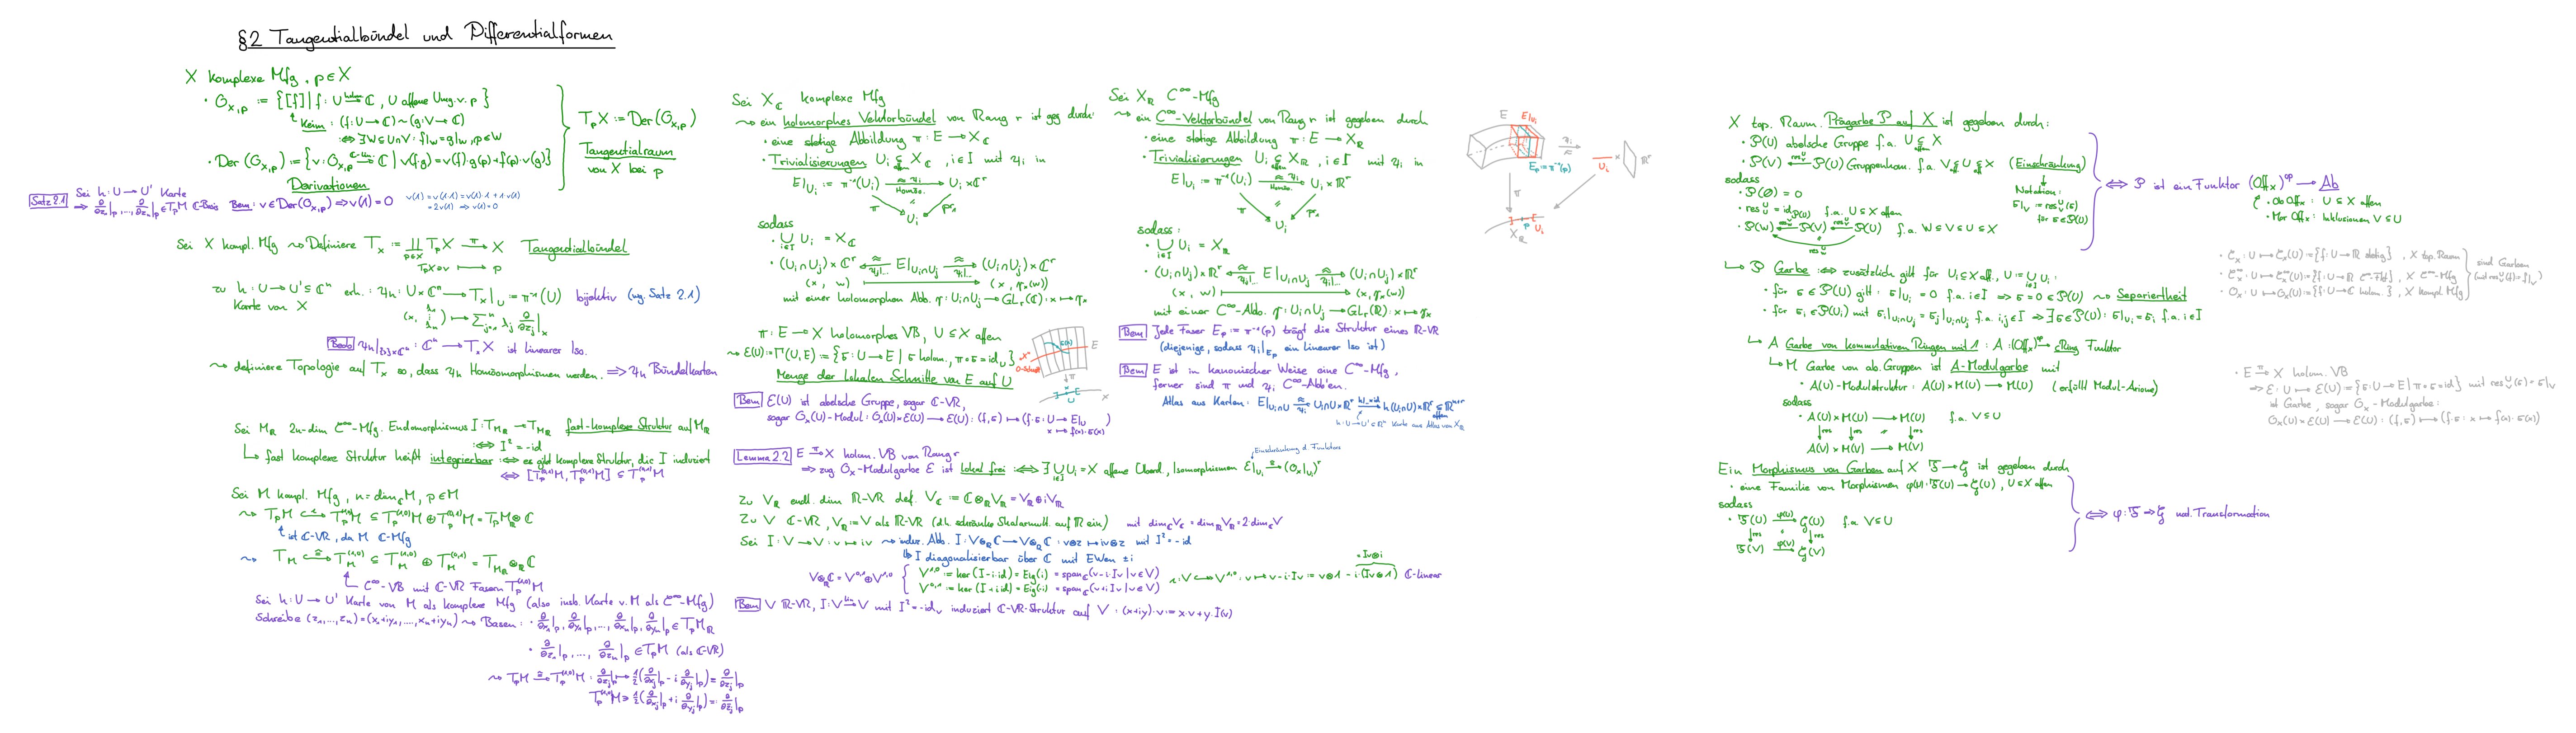 §2 Tangentialbündel und Differentialformen
X komplexe Mfg, p∈X
· O_{X,p} := {[f] | f: U →^{holom} ℂ, U offene Umg. v. p}
Keim: (f:U→ℂ) ~ (g:V→ℂ)
:⇔ ∃W⊆U∩V: f|_W = g|_W, p∈W
· Der(O_{X,p}) := {v: O_{X,p} →^{ℂ-lin.} ℂ | v(f·g) = v(f)·g(p)+f(p)·v(g)}
Derivationen
T_pX := Der(O_{X,p})
Tangentialraum
von X bei p
Satz 2.1 Sei h: U→U' Karte
⇒ ∂/∂z_1|_p, ..., ∂/∂z_n|_p ∈ T_pM ℂ-Basis
Bem: v∈Der(O_{X,p}) ⇒ v(1)=0
v(1) = v(1·1) = v(1)·1+1·v(1)
= 2v(1) ⇒ v(1)=0
Sei X kompl. Mfg ⇝ Definiere T_X := ∐_{p∈X} T_pX →^π X Tangentialbündel
T_pX∋v ⟼ p
zu h: U→U'⊆ℂⁿ erh.: ψ_h: U×ℂⁿ → T_X|_U := π⁻¹(U) bijektiv (wg. Satz 2.1)
Karte von X
(x, (λ_1 ⋮ λ_n)) ⟼ Σ_{j=1}^n λ_j ∂/∂z_j|_x
Beob ψ_h|_{{x}×ℂⁿ}: ℂⁿ → T_xX ist linearer Iso.
⇝ definiere Topologie auf T_X so, dass ψ_h Homöomorphismen werden. ⇒ ψ_h Bündelkarten
Sei M_ℝ 2n-dim C^∞-Mfg. Endomorphismus I: T_{M_ℝ}→T_{M_ℝ} fast-komplexe Struktur auf M_ℝ
:⇔ I² = -id
↳ fast komplexe Struktur heißt integrierbar :⇔ es gibt komplexe Struktur, die I induziert
⇔ [T_M^{(1,0)}, T_M^{(1,0)}] ⊆ T_M^{(1,0)}
Sei M kompl. Mfg, n = dim_ℂ M, p∈M
⇝ T_pM ↪^ι T_p^{(1,0)}M ⊆ T_p^{(1,0)}M ⊕ T_p^{(0,1)}M = T_pM_ℝ⊗ℂ
ist ℂ-VR, da M ℂ-Mfg
⇝ T_M →^≅ T_M^{(1,0)} ⊆ T_M^{(1,0)} ⊕ T_M^{(0,1)} = T_{M_ℝ}⊗_ℝℂ
C^∞-VB mit ℂ-VR Fasern T_p^{(1,0)}M
Sei h: U→U' Karte von M als komplexe Mfg (also insb. Karte v. M als C^∞-Mfg)
Schreibe (z_1,...,z_n) = (x_1+iy_1,...,x_n+iy_n) ⇝ Basen: · ∂/∂x_1|_p, ∂/∂y_1|_p, ..., ∂/∂x_n|_p, ∂/∂y_n|_p ∈ T_pM_ℝ
· ∂/∂z_1|_p, ..., ∂/∂z_n|_p ∈ T_pM (als ℂ-VR)
⇝ T_pM →^≅ T_p^{(1,0)}M: ∂/∂z_j|_p ⟼ ½(∂/∂x_j|_p - i ∂/∂y_j|_p) = ∂/∂z_j|_p
T_p^{(0,1)}M ∋ ½(∂/∂x_j|_p + i ∂/∂y_j|_p) =: ∂/∂z̄_j|_p
Sei X_ℂ komplexe Mfg
⇝ ein holomorphes Vektorbündel von Rang r ist geg durch:
· eine stetige Abbildung π: E→X_ℂ
· Trivialisierungen U_i ⊆_{offen} X_ℂ, i∈I mit ψ_i in
E|_{U_i} := π⁻¹(U_i) →^{≈ ψ_i}_{Homöo.} U_i×ℂ^r
π pr_1
U_i
sodass
· ⋃_{i∈I} U_i = X_ℂ
· (U_i∩U_j)×ℂ^r ←^≈_{ψ_j|...} E|_{U_i∩U_j} →^≈_{ψ_i|...} (U_i∩U_j)×ℂ^r
(x, w) ⟼ (x, η_x(w))
mit einer holomorphen Abb. η: U_i∩U_j → GL_r(ℂ): x↦η_x
π: E→X holomorphes VB, U⊆X offen
⇝ E(U) := Γ(U,E) = {s: U→E | s holom., π∘s = id_U}
Menge der lokalen Schnitte von E auf U
"X"
0-Schnitt
s(x)
E
π
U
X
Bem E(U) ist abelsche Gruppe, sogar ℂ-VR,
sogar O_X(U)-Modul: O_X(U)×E(U) → E(U): (f,s) ↦ (f·s: U→E|_U)
x↦f(x)·s(x)
Lemma 2.2 E →^π X holom. VB von Rang r
Einschränkung d. Funktors
⇒ zug. O_X-Modulgarbe E ist lokal frei :⇔ ∃ ⋃_{i∈I} U_i = X offene Überd., Isomorphismen E|_{U_i} →^≅ (O_X|_{U_i})^r
Zu V_ℝ endl. dim ℝ-VR def. V_ℂ := ℂ⊗_ℝ V_ℝ = V_ℝ⊕iV_ℝ
Zu V ℂ-VR, V_ℝ := V als ℝ-VR (d.h. schränke Skalarmult. auf ℝ ein) mit dim_ℂ V_ℂ = dim_ℝ V_ℝ = 2·dim_ℂ V
Sei I: V→V: v↦iv ⇝ induz. Abb. I: V⊗_ℝℂ → V⊗_ℝℂ: v⊗z ↦ iv⊗z mit I² = -id
↳ I diagonalisierbar über ℂ mit EWen ±i
V⊗_ℝℂ = V^{0,1}⊕V^{1,0} { V^{1,0} := ker(I-i·id) = Eig(i) = span_ℂ(v-i·Iv | v∈V)
V^{0,1} := ker(I+i·id) = Eig(-i) = span_ℂ(v+i·Iv | v∈V)
ι: V↪V^{1,0}: v↦v-i·Iv := v⊗1 - i·(Iv⊗1) ℂ-linear
= Iv⊗i
Bem V ℝ-VR, I: V →^{lin} V mit I² = -id_V induziert ℂ-VR-Struktur auf V: (x+iy)·v := x·v+y·I(v)
Sei X_ℝ C^∞-Mfg
⇝ ein C^∞-Vektorbündel von Rang r ist gegeben durch
· eine stetige Abbildung π: E→X_ℝ
· Trivialisierungen U_i ⊆_{offen} X_ℝ, i∈I mit ψ_i in
E|_{U_i} := π⁻¹(U_i) →^{≈ ψ_i}_{Homöo.} U_i×ℝ^r
π pr_1
U_i
sodass:
· ⋃_{i∈I} U_i = X_ℝ
· (U_i∩U_j)×ℝ^r ←^≈_{ψ_j|...} E|_{U_i∩U_j} →^≈_{ψ_i|...} (U_i∩U_j)×ℝ^r
(x, w) ⟼ (x, η_x(w))
mit einer C^∞-Abb. η: U_i∩U_j → GL_r(ℝ): x↦η_x
Bem Jede Faser E_p := π⁻¹(p) trägt die Struktur eines ℝ-VR
(diejenige, sodass ψ_i|_{E_p} ein linearer Iso ist)
Bem E ist in kanonischer Weise eine C^∞-Mfg,
ferner sind π und ψ_i C^∞-Abb'en.
Atlas aus Karten: E|_{U_i∩U} →^≈_{ψ_i} U_i∩U×ℝ^r →^{h|...×id} h(U_i∩U)×ℝ^r ⊆_{offen} ℝ^{n+r}
h: U→U'⊆ℝⁿ Karte aus Atlas von X_ℝ
E
E|_{U_i}
E_p := π⁻¹(p)
ψ_i
≈
U_i
×
ℝ^r
π
p
U_i
X_ℝ
X top. Raum. Prägarbe P auf X ist gegeben durch:
· P(U) abelsche Gruppe f.a. U ⊆_{offen} X
· P(V) ←^{res^U_V} P(U) Gruppenhom. f.a. V⊆U⊆X (Einschränkung)
sodass
Notation:
s|_V := res^U_V(s)
für s∈P(U)
· P(∅) = 0
· res^U_U = id_{P(U)} f.a. U⊆X offen
· P(W) ←^{res^V_W} P(V) ←^{res^U_V} P(U) f.a. W⊆V⊆U⊆X
res^U_W
⇔ P ist ein Funktor (Off_X)^{op} → Ab
· Ob Off_X: U⊆X offen
· Mor Off_X: Inklusionen V⊆U
↳ P Garbe :⇔ zusätzlich gilt für U_i⊆X off., U := ⋃_{i∈I} U_i:
· für s∈P(U) gilt: s|_{U_i} = 0 f.a. i∈I ⇒ s = 0∈P(U) ⇝ Separiertheit
· für s_i∈P(U_i) mit s_i|_{U_i∩U_j} = s_j|_{U_i∩U_j} f.a. i,j∈I ⇒ ∃s∈P(U): s|_{U_i} = s_i f.a. i∈I
↳ A Garbe von kommutativen Ringen mit 1: A: (Off_X)^{op} → cRing Funktor
↳ M Garbe von ab. Gruppen ist A-Modulgarbe mit
· A(U)-Modulstruktur: A(U)×M(U) → M(U) (erfüllt Modul-Axiome)
sodass
· A(U)×M(U) → M(U) f.a. V⊆U
↓res ↓res ↓res
A(V)×M(V) → M(V)
Ein Morphismus von Garben auf X F→G ist gegeben durch
· eine Familie von Morphismen φ(U): F(U)→G(U), U⊆X offen
sodass
· F(U) →^{φ(U)} G(U) f.a. V⊆U
↓res ↓res
F(V) →^{φ(V)} G(V)
⇔ φ: F⇒G nat. Transformation
· C_X: U ↦ C_X(U) := {f: U→ℝ stetig}, X top. Raum
· C_X^∞: U ↦ C_X^∞(U) := {f: U→ℝ C^∞-Fkt}, X C^∞-Mfg
· O_X: U ↦ O_X(U) := {f: U→ℂ holom.}, X kompl. Mfg
sind Garben
(mit res^U_V(f) = f|_V)
· E →^π X holom. VB
⇒ E: U ↦ E(U) = {s: U→E | π∘s = id} mit res^U_V(s) = s|_V
ist Garbe, sogar O_X-Modulgarbe:
O_X(U)×E(U) → E(U): (f,s) ↦ (f·s: x↦f(x)·s(x))